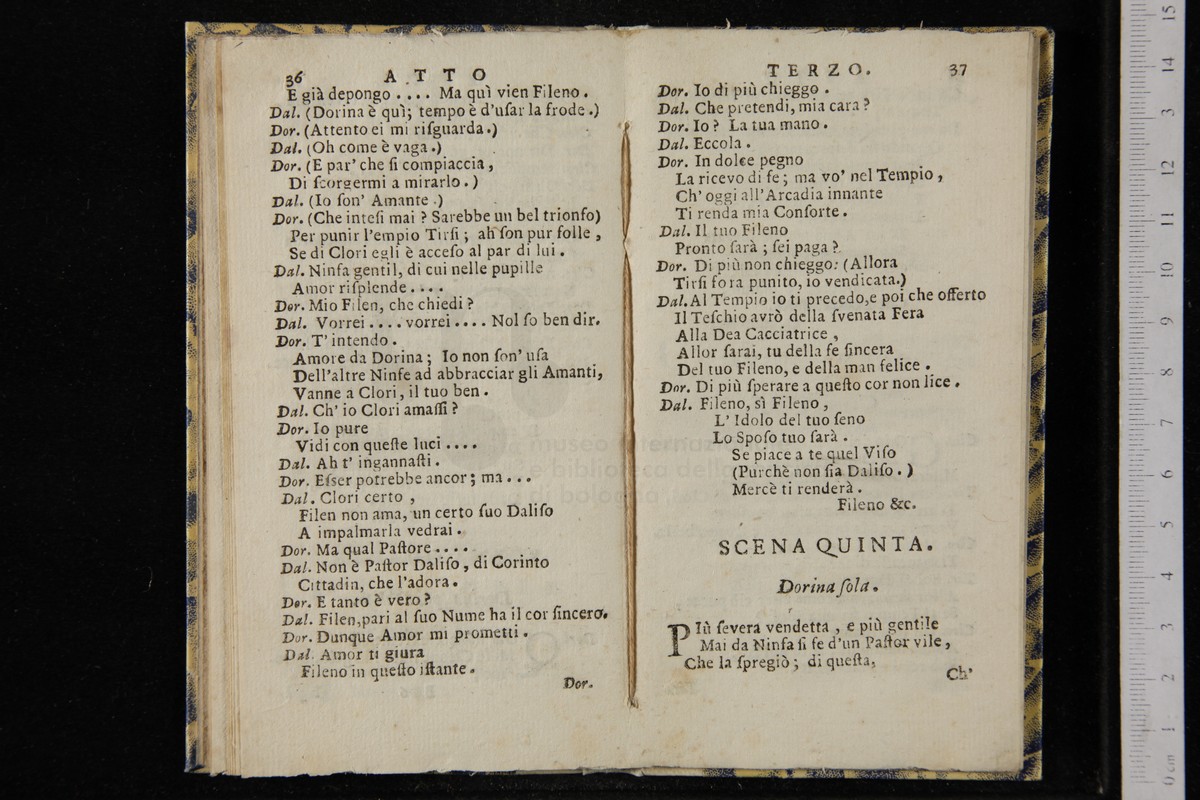 36 ATTO
E già depongo .... Ma quì vien Fileno.
Dal. (Dorina è quì; tempo è d'uſar la frode.)
Dor. (Attento ei mi riſguarda.)
Dal. (Oh come è vaga.)
Dor. (E par' che ſi compiaccia,
Di ſcorgermi a mirarlo.)
Dal. (Io ſon' Amante.)
Dor. (Che inteſi mai? Sarebbe un bel trionfo)
Per punir l'empio Tirſi; ah ſon pur folle,
Se di Clori egli è acceſo al par di lui.
Dal. Ninfa gentil, di cui nelle pupille
Amor riſplende....
Dor. Mio Filen, che chiedi?
Dal. Vorrei....vorrei.... Nol ſo ben dir.
Dor. T' intendo.
Amore da Dorina; Io non ſon' uſa
Dell'altre Ninfe ad abbracciar gli Amanti,
Vanne a Clori, il tuo ben.
Dal. Ch' io Clori amaſſi?
Dor. Io pure
Vidi con queſte luci....
Dal. Ah t' ingannaſti.
Dor. Eſser potrebbe ancor; ma...
Dal. Clori certo,
Filen non ama, un certo ſuo Daliſo
A impalmarla vedrai.
Dor. Ma qual Paſtore....
Dal. Non è Paſtor Daliſo, di Corinto
Cittadin, che l'adora.
Dor. E tanto è vero?
Dal. Filen,pari al ſuo Nume ha il cor ſincero.
Dor. Dunque Amor mi prometti.
Dal. Amor ti giura
Fileno in queſto iſtante.
Dor.
TERZO. 37
Dor. Io di più chieggo.
Dal. Che pretendi, mia cara?
Dor. Io? La tua mano.
Dal. Eccola.
Dor. In dolce pegno
La ricevo di fe; ma vo' nel Tempio,
Ch' oggi all'Arcadia innante
Ti renda mia Conſorte.
Dal. Il tuo Fileno
Pronto ſarà; ſei paga?
Dor. Di più non chieggo: (Allora
Tirſi fora punito, io vendicata.)
Dal. Al Tempio io ti precedo,e poi che offerto
Il Teſchio avrò della ſvenata Fera
Alla Dea Cacciatrice,
Allor ſarai, tu della fe ſincera
Del tuo Fileno, e della man felice.
Dor. Di più ſperare a queſto cor non lice.
Dal. Fileno, sì Fileno,
L' Idolo del tuo ſeno
Lo Spoſo tuo ſarà.
Se piace a te quel Viſo
(Purchè non ſia Daliſo.)
Mercè ti renderà.
Fileno &c.
SCENA QUINTA.
Dorina ſola.
PIù ſevera vendetta, e più gentile
Mai da Ninfa ſi fe d'un Paſtor vile,
Che la ſpregiò; di queſta,
Ch'